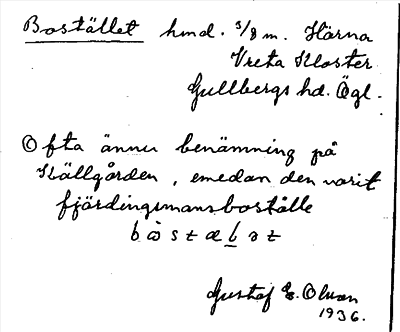 Bostället hmd. 5/8 m. Härna
Vreta Kloster
Gullbergs hd. Ögl.
Ofta ännu benämning på
Källgården, emedan den varit
fjärdingsmansboställe
Gustaf E. Olsson
1936.